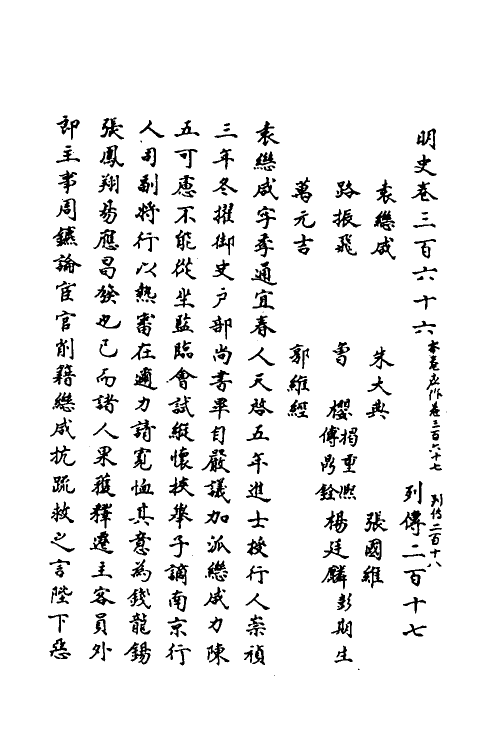 明史卷三百六十六 本卷应作卷三百六十七 列傳二百十七 列传二百十八
袁繼咸 朱大典 張國維
路振飛 曾櫻 揭重熙 傅鼎銓 楊廷麟 彭期生
萬元吉 郭維經
袁繼咸字季通宜春人天啓五年進士授行人崇禎
三年冬擢御史户部尚書畢自嚴議加派繼咸力陳
五可慮不能從坐監臨會試縱懷挾舉子謫南京行
人司副將行以熱審在邇力請寬恤其意為錢龍錫
張鳳翔易應昌發也已而諸人果獲釋遷主客員外
郎主事周鑣論宦官削籍繼咸抗疏救之言陛下惡